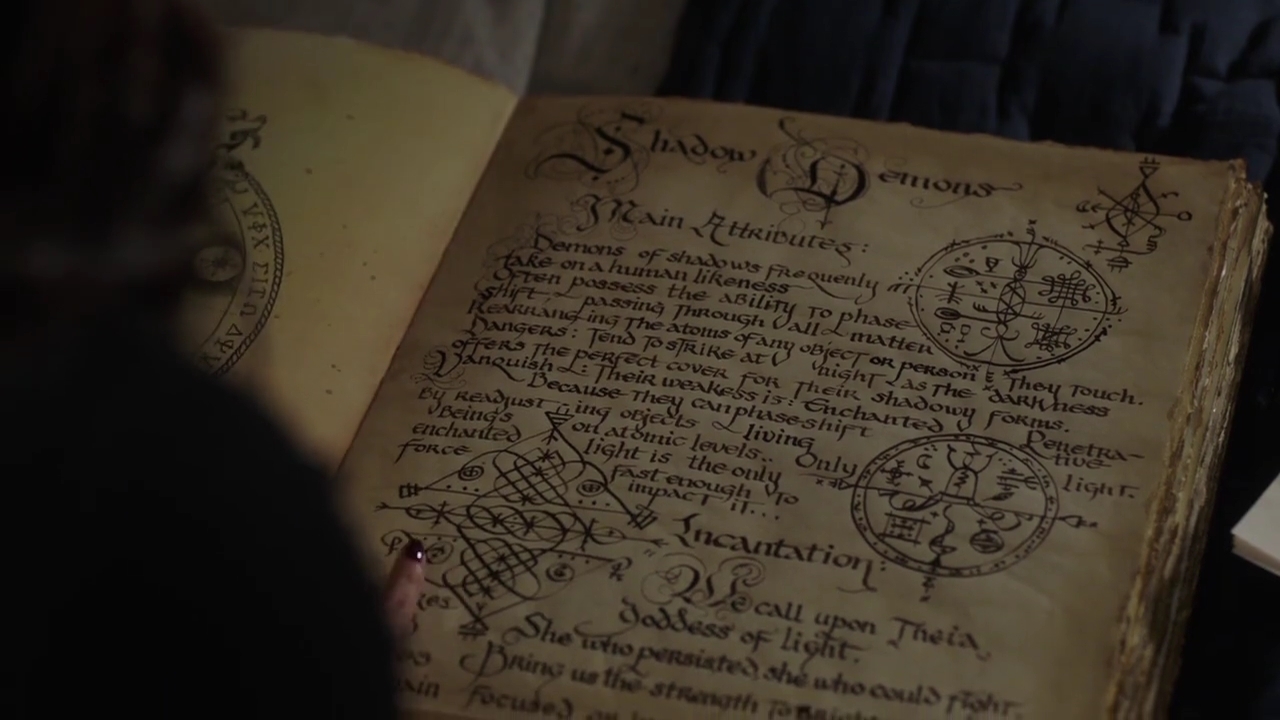 Shadow Demons
Main Attributes:
Demons of shadows frequenly
take on a human likeness
Often possess the ability to phase
shift, passing through all matter
Rearranging the atoms of any object or person They touch.
Dangers: Tend to strike at night, as the darkness
offers the perfect cover for their shadowy forms.
Vanquish: Their weakness is: Enchanted Penetra-
tive light.
Because they can phase-shift
By readjusting objects & living
Being's on atomic levels.. Only
enchanted light is the only
force fast enough to
impact it...
Incantation:
We call upon Theia,
goddess of light.
She who persisted, she who could fight.
Bring us the strength to
Focused